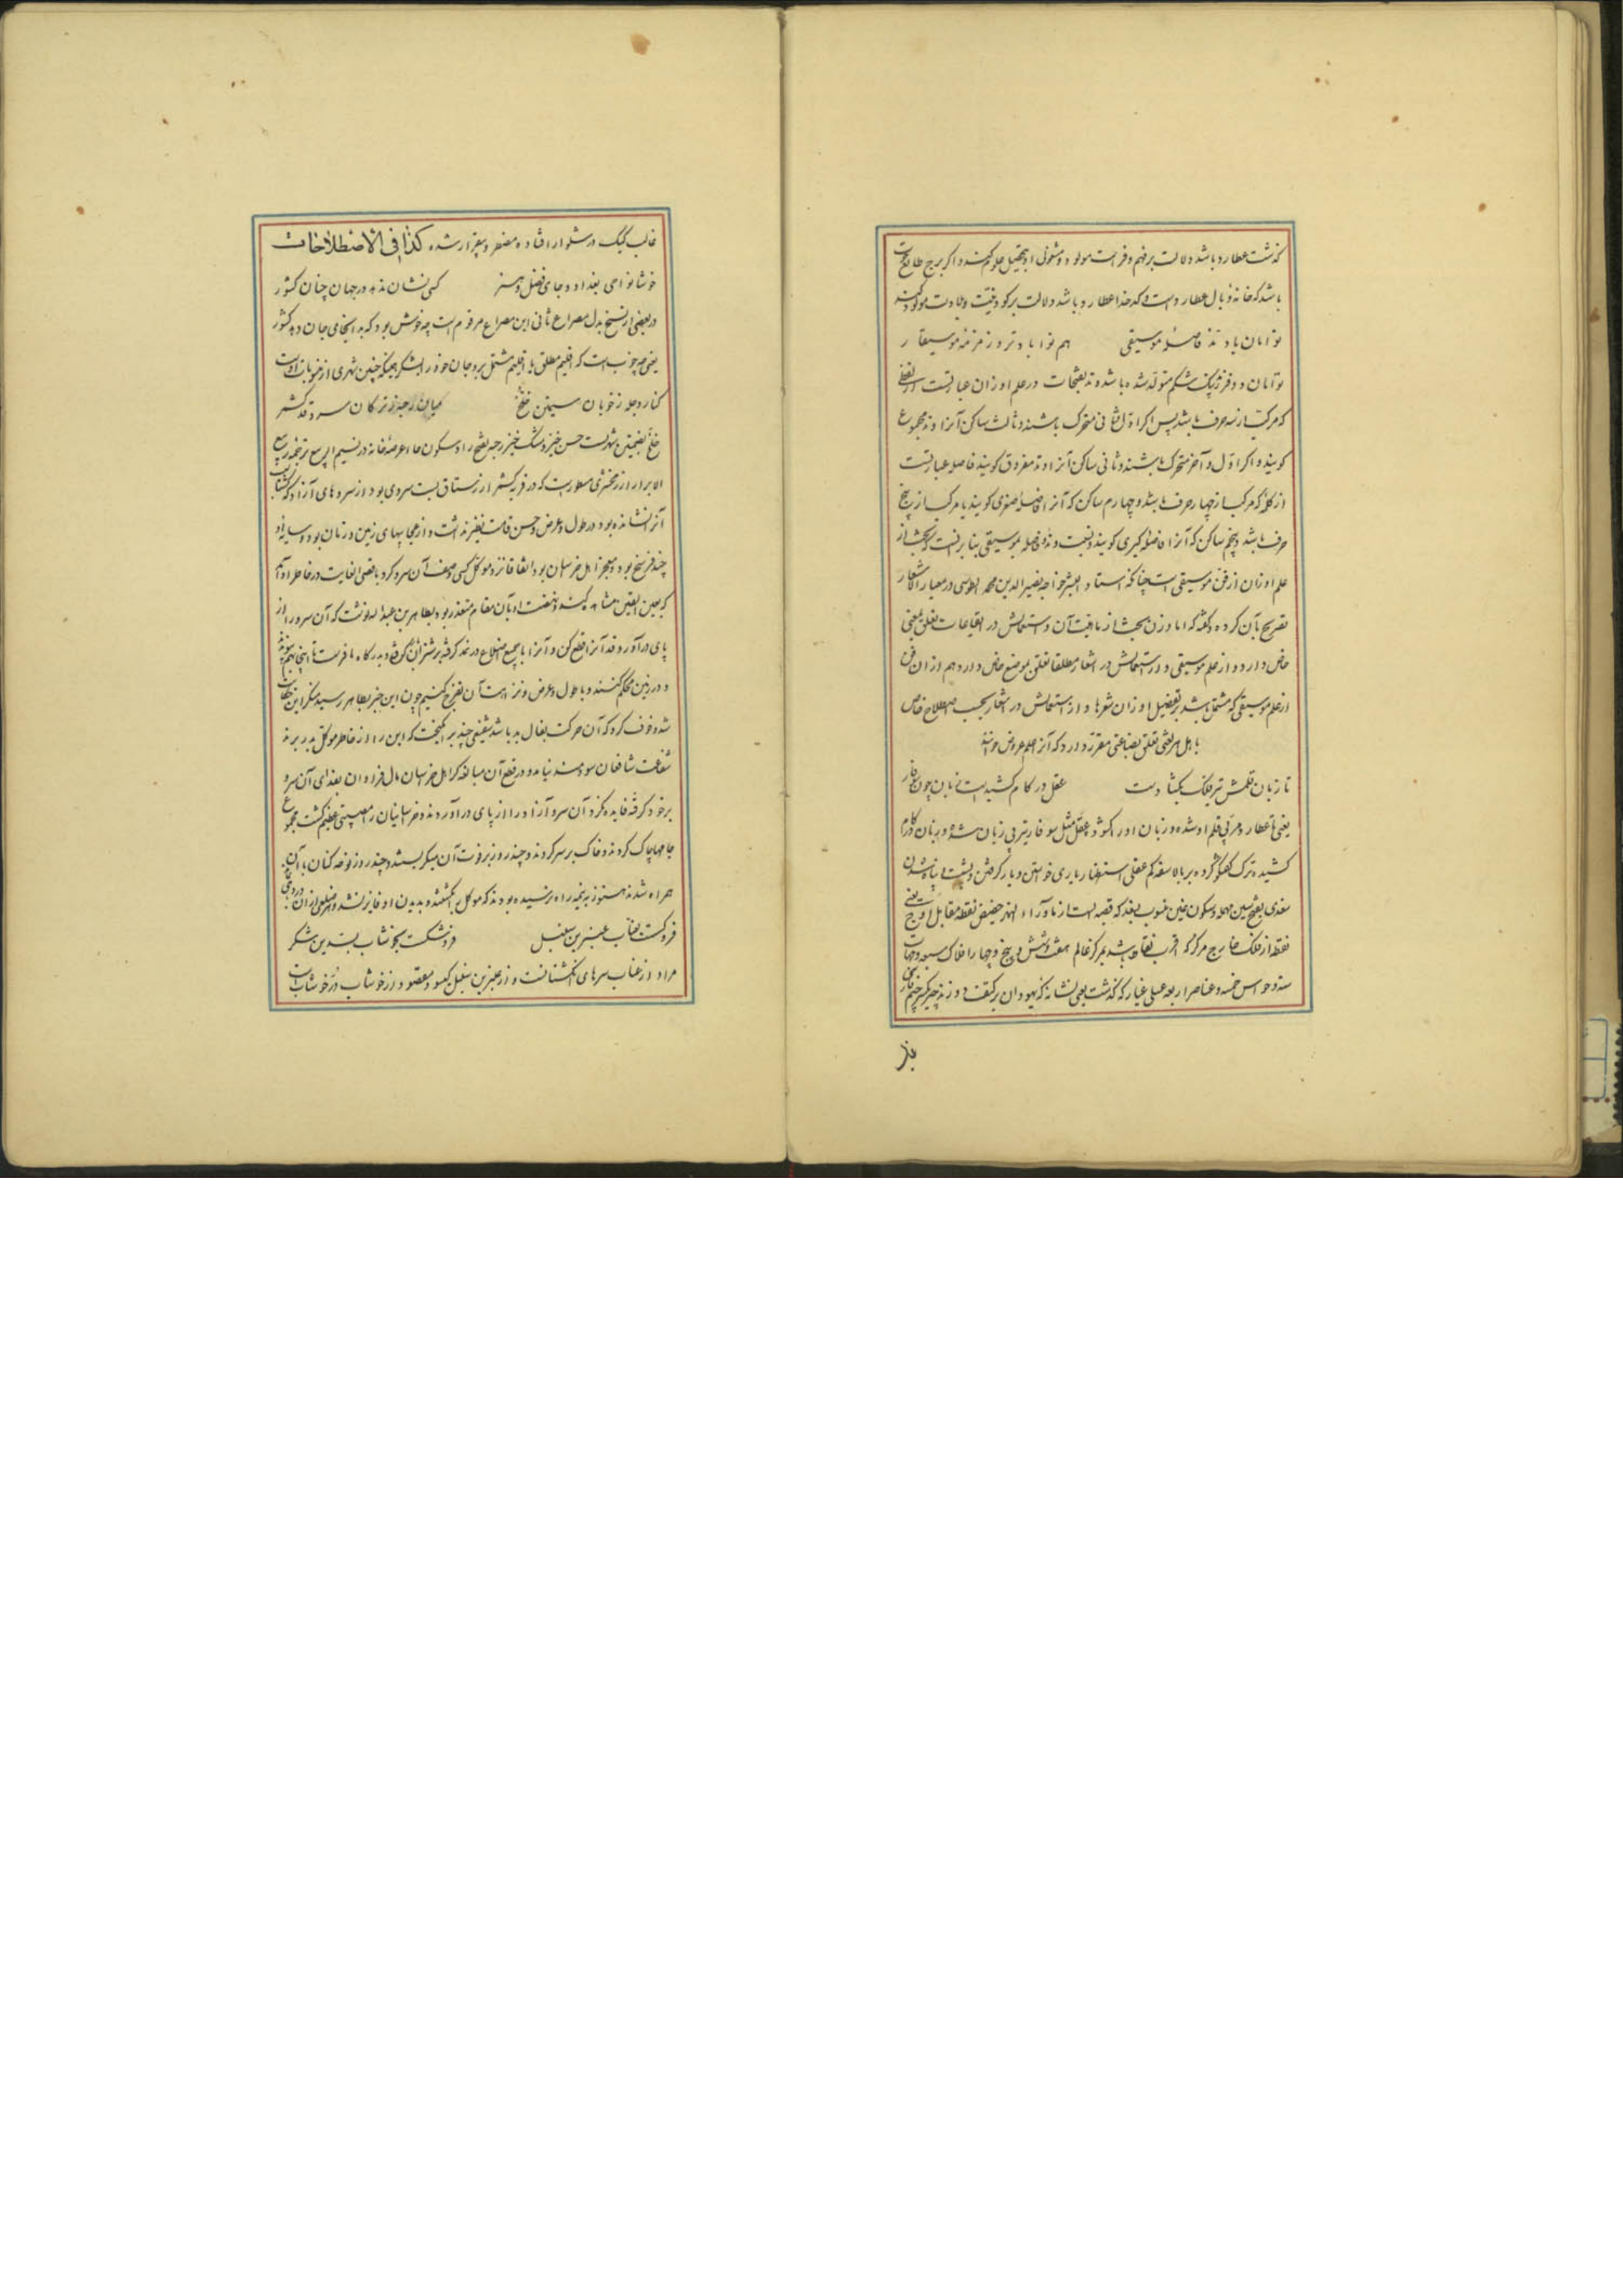 گذشت عطارد باشد دلالت بر فهم و فراست مولود و مشغولی او بتحصیل علوم کند و اگر برج طالع
باشد که خانه وبال عطارد است که خدا عطارد باشد دلالت بر کودنیت ولادت مولود کند
توامان با وتد فاصله موسیقی هم نوا با وتر و زمزمه موسیقار
توامان دو فرزند یک شکم متولد شده باشد وتد بفتحات در علم اوزان عبارتست از لفظی
که مرکب از سه حرف باشد پس اگر اول و ثانی متحرک باشند و ثالث ساکن آنرا وتد مجموع
گویند و اگر اول و آخر متحرک باشند و ثانی ساکن آنرا وتد مفروق گویند فاصله عبارتست
از کلمه که مرکب از چهار حرف باشد و چهارم ساکن که آنرا فاصله صغری گویند یا مرکب از پنج
حرف باشد و پنجم ساکن که آنرا فاصله کبری گویند و نسبت وتد و فاصله بموسیقی بنا بر آنست که بحث از
علم اوزان از فن موسیقی است چنانکه استاد البشر خواجه نصیر الدین محمد الطوسی در معیار الاشعار
تصریح بآن کرده و گفته که اما وزن بحث از ماهیت آن و استعمالش در ایقاعات تعلق بفنی
خاص دارد و از علم موسیقی و از استعمالش در اشعار مطلقا تعلق بموضع خاص دارد هم از آن فن
از علم موسیقی که مشتمل باشد بر تفصیل اوزان شعرها و از استعمالش در اشعار بحسب اصطلاح خاص
با اهل هر لغتی تعلق بصناعتی مفرد دارد که آنرا علم عروض خوانند
تا زبان قلمش تیر فلک بگشادست عقل در کام کشیدست زبان چون سوفار
یعنی تا عطارد مربی قلم او شده و زبان او را گشوده عقل مثل سوفار تیر بی زبان شده و زبان در کام
کشیده ترک گفتگو کرده
سغدی بضم سین مهمله و سکون غین منسوب بسغد که قصبه است از ماوراء النهر حضیض نقطه مقابل اوج یعنی
نقطه از فلک خارج مرکز که اقرب نقاط باشد بمرکز عالم هفت و شش و پنج و چهار افلاک سبعه و جهات
سته و حواس خمسه و عناصر اربعه عسلی غیار که گذشت یعنی نشانه که یهودان بر کتف دوزند
غالب کبک در شلوار افتاده مضطر و بیقرار شده کذا فی الاصطلاحات
خوشا نواحی بغداد و جای فضل و هنر کسی نشان ندهد در جهان چنان کشور
در بعضی از نسخ بدل مصراع ثانی این مصراع مرقوم است چه خوش بود که بد اینجای جان دهد کشور
کنار دجله ز خوبان سیمتن خلخ میان رحبه ز ترکان سروقد کشمر
خلخ بضمتین شهریست حسن خیز و مشک خیز رحبه بفتح را و سکون حاء عرصه خانه در نسیم الربیع ترجمه ربیع
الابرار از زمخشری مسطورست که در قریه کشمر از رستاق بست سروی بود از سروهای آزاد که گشتاسب
آنرا نشانده بود و در طول و عرض و حسن قامت نظیر نداشت و از عجایبهای زمین و زمان بود و سایه او
چند فرسخ بود و مفخر اهل خراسان بود اتفاقا نزد متوکل کسی وصف آن سرو کرد باقصی الغایت در خاطر او آمد
که بعین الیقین مشاهده کند و نهضت او بآن مقام متعذر بود بطاهر بن عبدالله نوشت که آن سرو را از
پای درآور و قد آنرا قطع کن و آنرا با جمیع اضلاع در نمد گرفته بر شتران بدرگاه ما فرست تا اینجا بهم پیوند
و در زمین محکم کنند و با طول و عرض و نزاهت آن تفرج کنیم چون این خبر بطاهر رسید منکر این خطاب
شد و خوف کرد که آن حرکت بفال بد باشد شفیعی چند برانگیخت که این را از خاطر متوکل بدر برند
شفاعت شافعان سودمند نیامد و در قطع آن مبالغه کرد اهل خراسان مال فراوان بفدای آن سرو
بر خود گرفتند فایده نکرد آن سرو آزاد را از پای درآوردند و خراسانیان را مصیبتی عظیم گشت مجموع
جامها چاک کردند و خاک بر سر کردند و چند روز بر فوت آن میگریستند و چند روز نوحه کنان با آن
همراه شدند هنوز به نیمه راه نرسیده بودند که متوکل را بکشتند و بدیدن او فایز نشد
فروگسست بعناب عنبرین سنبل فروشکست بخوشاب بسدین شکر
مراد از عناب سرهای انگشتانست و از عنبرین سنبل گیسو و مقصود از خوشاب در خوشاب است